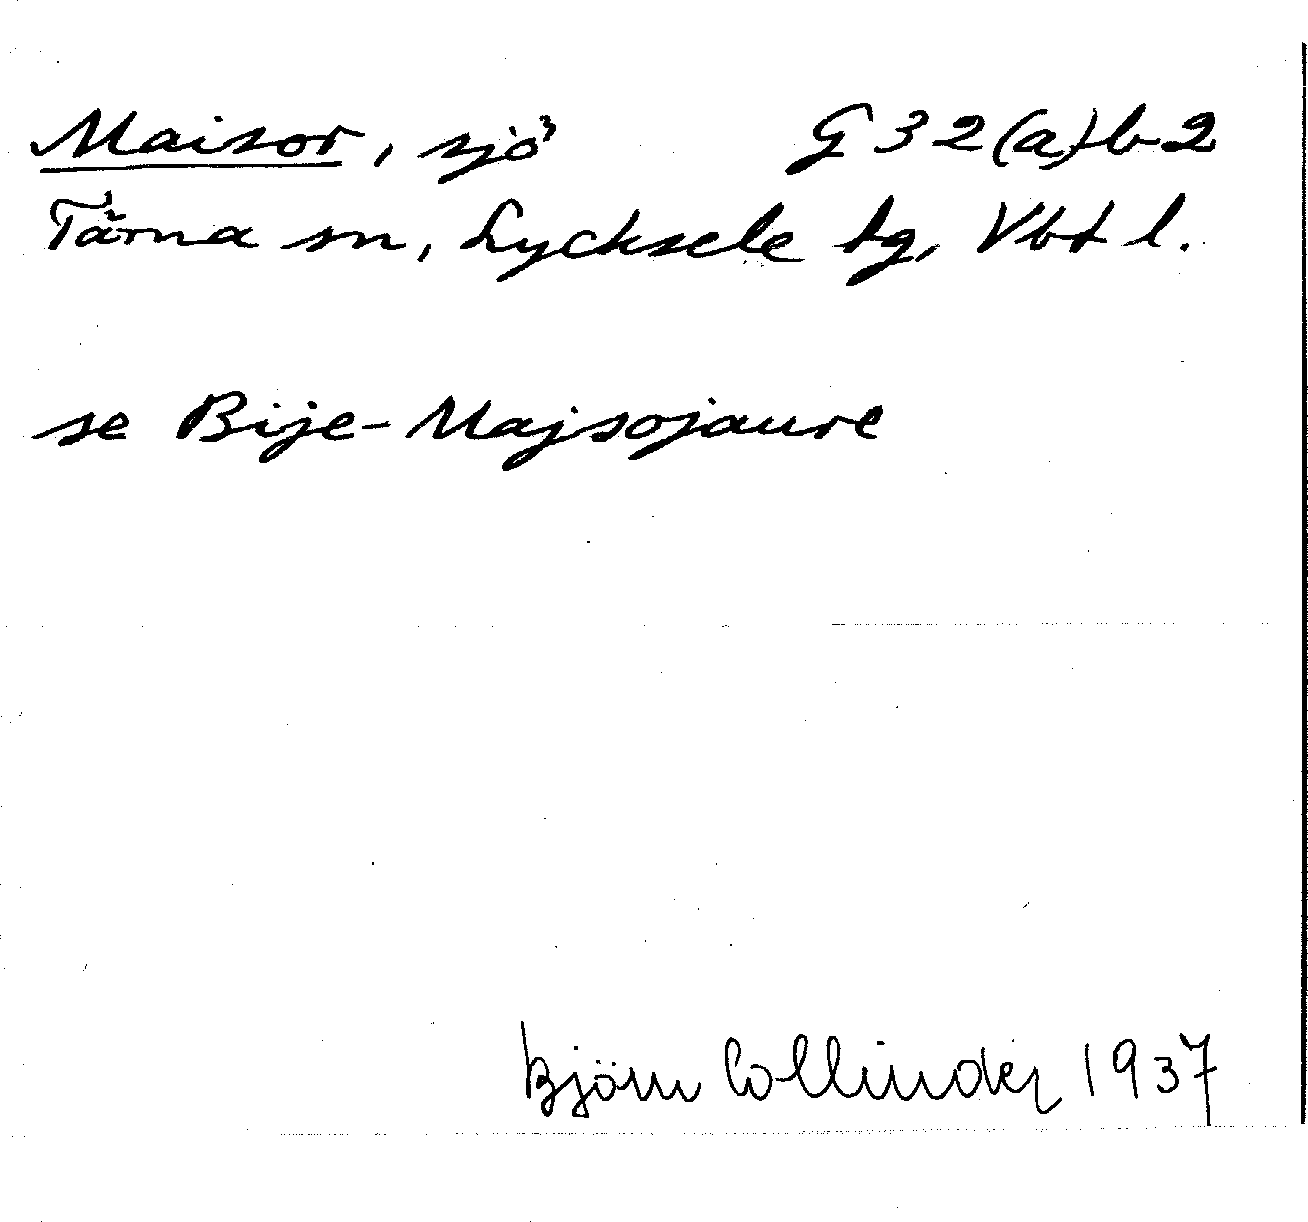 Maisor, sjö G 32(a)b2
Tärna sn, Lycksele tg, Vbt l.
se Bije-Majsojaure
Björn Collinder 1937